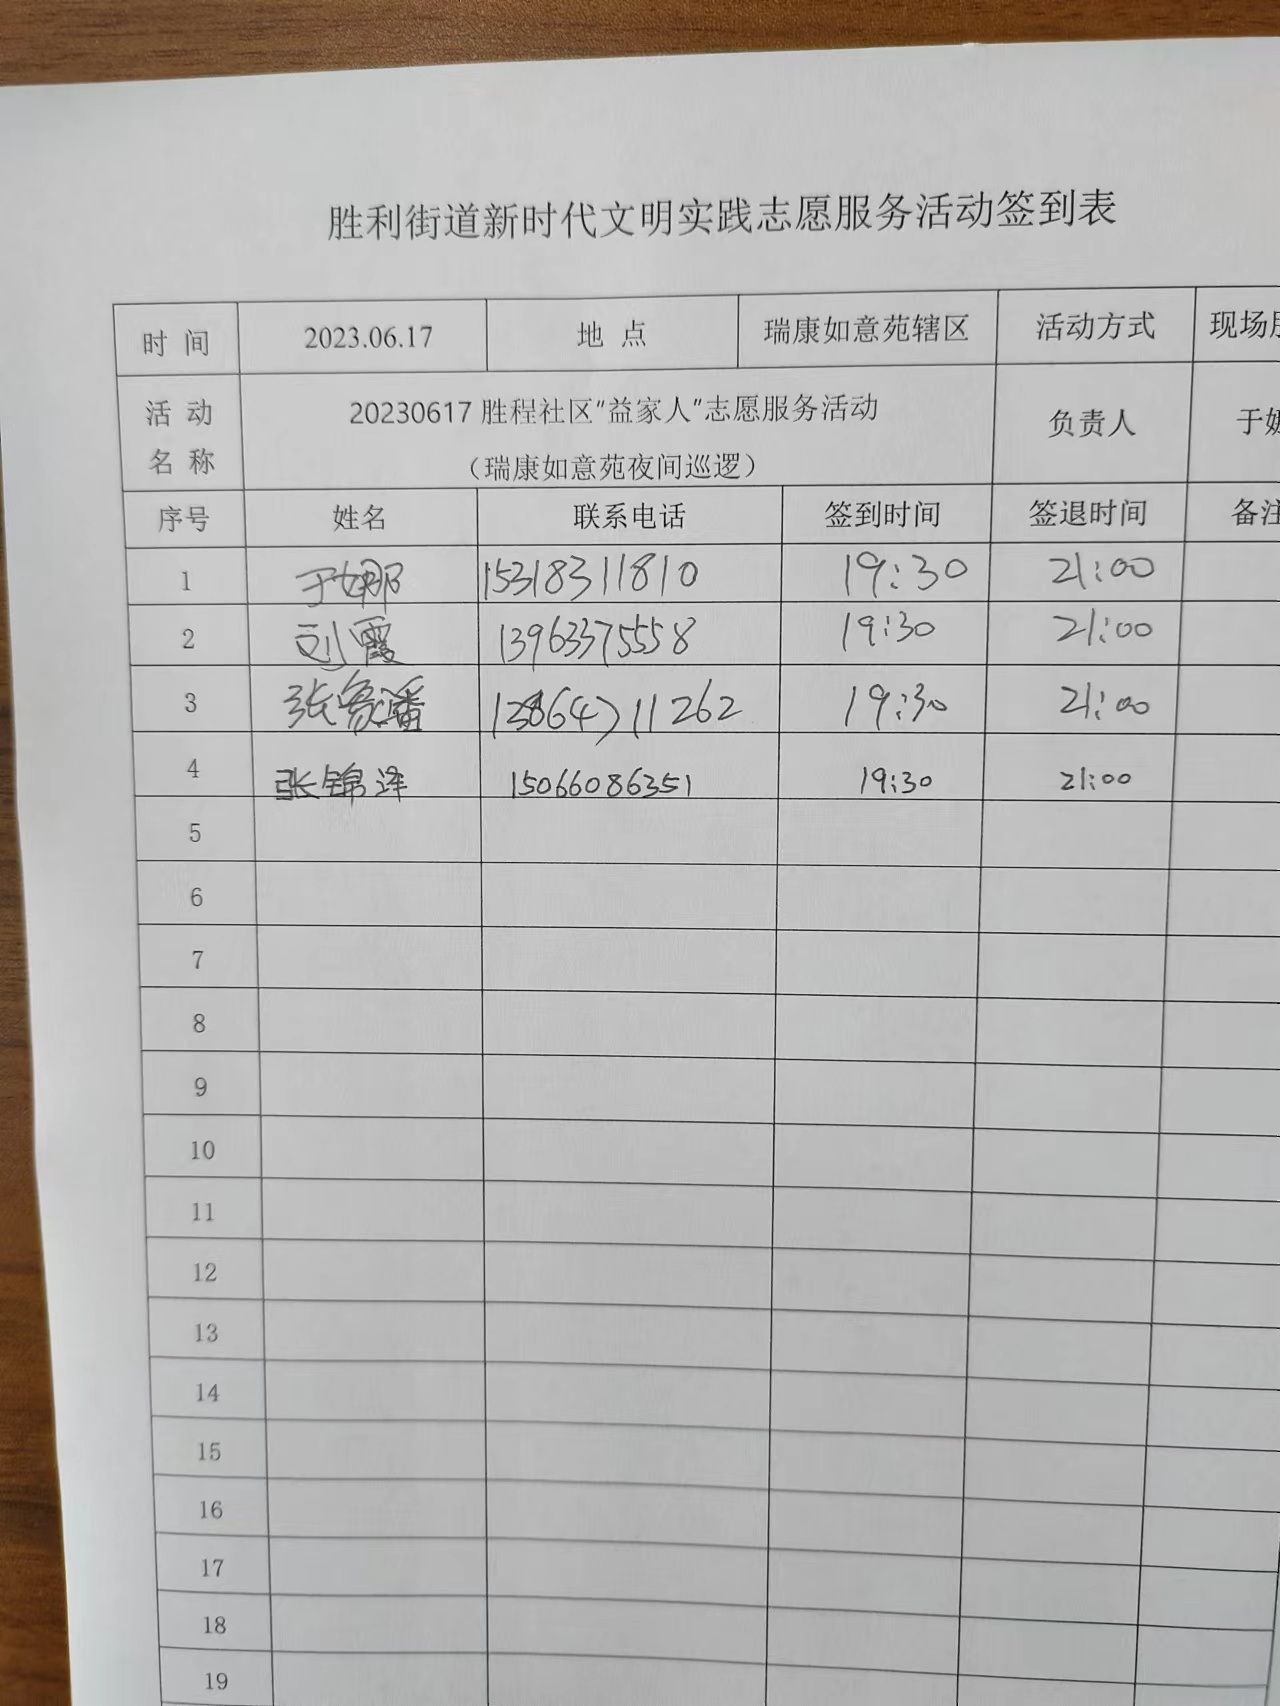 胜利街道新时代文明实践志愿服务活动签到表
时 间 2023.06.17 地 点 瑞康如意苑辖区 活动方式 现场
活 动 名 称 20230617 胜程社区“益家人”志愿服务活动 负责人 于
（瑞康如意苑夜间巡逻）
序号 姓名 联系电话 签到时间 签退时间 备注
1 于娜 15318311810 19:30 21:00
2 刘霞 13963375558 19:30 21:00
3 张 19:30 21:00
4 张锦泽 15066086351 19:30 21:00
5
6
7
8
9
10
11
12
13
14
15
16
17
18
19